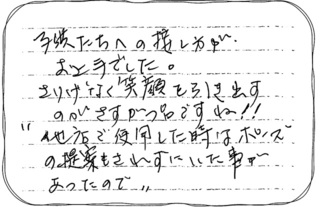 子供たちへの接し方が
お上手でした。
さりげなく笑顔を引き出す
のがさすがプロですね!!
"他店で使用した時はポーズ
の提案もされずにいた事が
あったので"